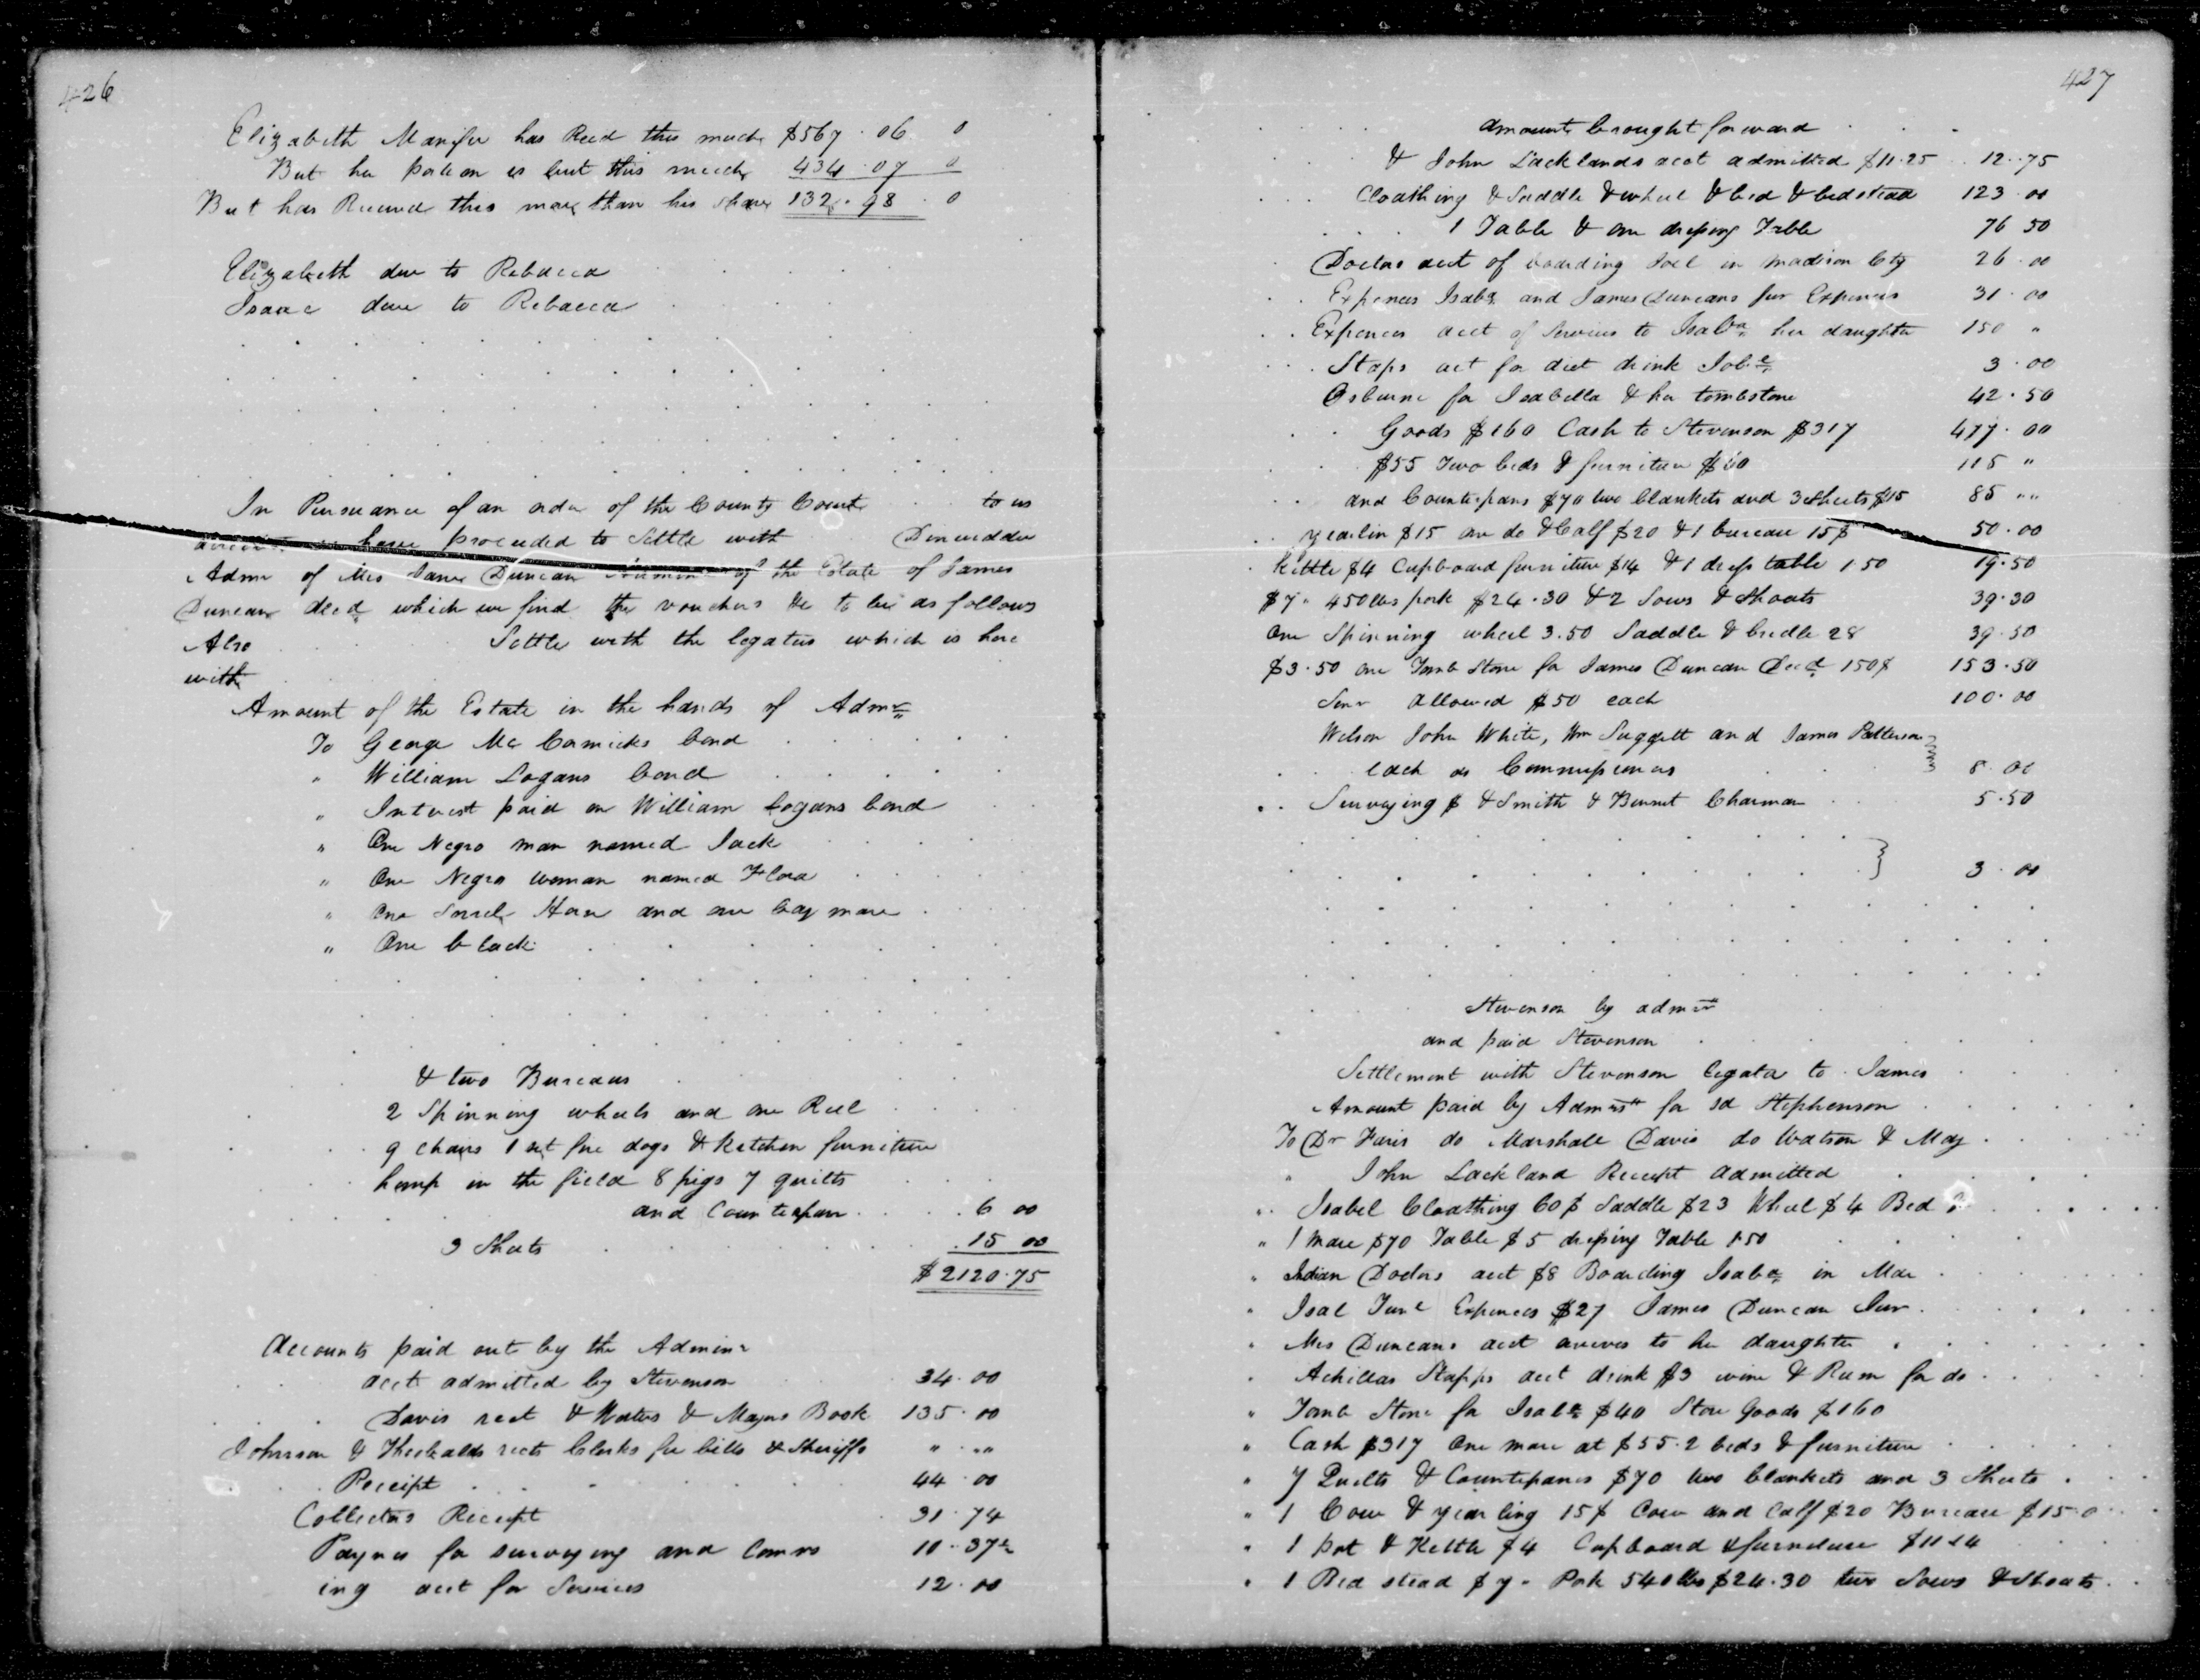 426
Elizabeth Manifee has Recd this much $567.06 0
But her portion is but this much 434.07 0
But has Received this more than his share 132.98.0
Elizabeth due to Rebacca
Isaac due to Rebacca
In Pursuance of an order of the County Court to us
have proceeded to Settle with Dinwiddie
Admr of Mrs Jane Duncan Adminr of the Estate of James
Duncan decd which we find the vouchers &c to be as follows
Also Settle with the legatees which is here
with
Amount of the Estate in the hands of Admr
To George Mc Cormicks bond
" William Logans bond
" Interest paid on William Logans bond
" One Negro man named Jack
" One Negro woman named Flora
" One Sorrel Horse and one bay mare
" One black
& two Bureaus
2 Spinning wheels and one Reel
9 chairs 1 set fire dogs & Kitchen furniture
hemp in the field 8 pigs 7 quilts
and Counterpan 6 00
3 Sheets 15 00
$2120.75
Accounts paid out by the Adminr
acct admitted by Stevenson 34.00
Davis rect & Waters & Mayrs Book 135.00
Johnson & rects Clerks fee bills & Sheriffs " ""
Receipt 44.00
Collectors Receipt 31.74
Paynes for surveying and Comrs 10.37½
ing acct for Services 12.00
427
Amounts brought forward
& John Lacklands acct admitted $11.25 12.75
Cloathing & Saddle & wheel & bed & bedstead 123.00
1 Table & one dressing Table 76 50
Doctor acct of boarding Joel in Madison Cty 26.00
Expences Isaba and James Duncans fur Expences 31.00
Expences acct of Services to Isaba her daughter 150 "
Staps act for diet drink Isbe 3.00
Osburne for Isabella & her tombstone 42.50
Goods $160 Cash to Stevenson $317 477.00
$55 Two beds & furniture $60 115 "
and Counterpans $70 two blankets and 3 sheets $15 85 ""
yearlin $15 one do & Calf $20 & 1 bureau 15$ 50.00
Kettle $4 Cupboard furniture $14 & 1 dress table 1.50 19.50
$7" 450 lbs pork $24.30 & 2 Sows & Shoats 39.30
One Spinning wheel 3.50 Saddle & bridle 28 39.50
$3.50 one Tomb Stone for James Duncan Decd 150$ 153.50
Senr Allowed $50 each 100.00
Wilson John White, Wm Suggett and James Patterson
each as Commissioners 8.00
Surveying $ & Smith & Bennet Chairman 5.50
3.00
Stevenson by admrx
and paid Stevenson
Settlement with Stevenson legatee to James
Amount paid by Admrx for sd Stephenson
To Dr Faris do Marshall Davis do Watson & May
" John Lackland Receipt Admitted
Isabel Cloathing 60$ Saddle $23 Wheel $4 Bed
" 1 Mare $70 Table $5 dressing Table 1.50
" Indian Doctors acct $8 Boarding Isaba in Mar
" Isal Expences $27 James Duncan Junr
" Mrs Duncans acct to her daughter
Achillas Stapps acct drink $3 wine & Rum for do
" Tomb Stone for Isaba $40 Store Goods $160
" Cash $317 One mare at $55.2 beds & furniture
" 7 Quilts & Counterpanes $70 two blankets and 3 Sheets
" 1 Cow & yearling 15$ Cow and Calf $20 Bureau $15.0
" 1 pot & Kettle $4 Cupboard & furneture
" 1 Bed stead $7" Pork 540 lbs $24.30 two Sows & Shoats